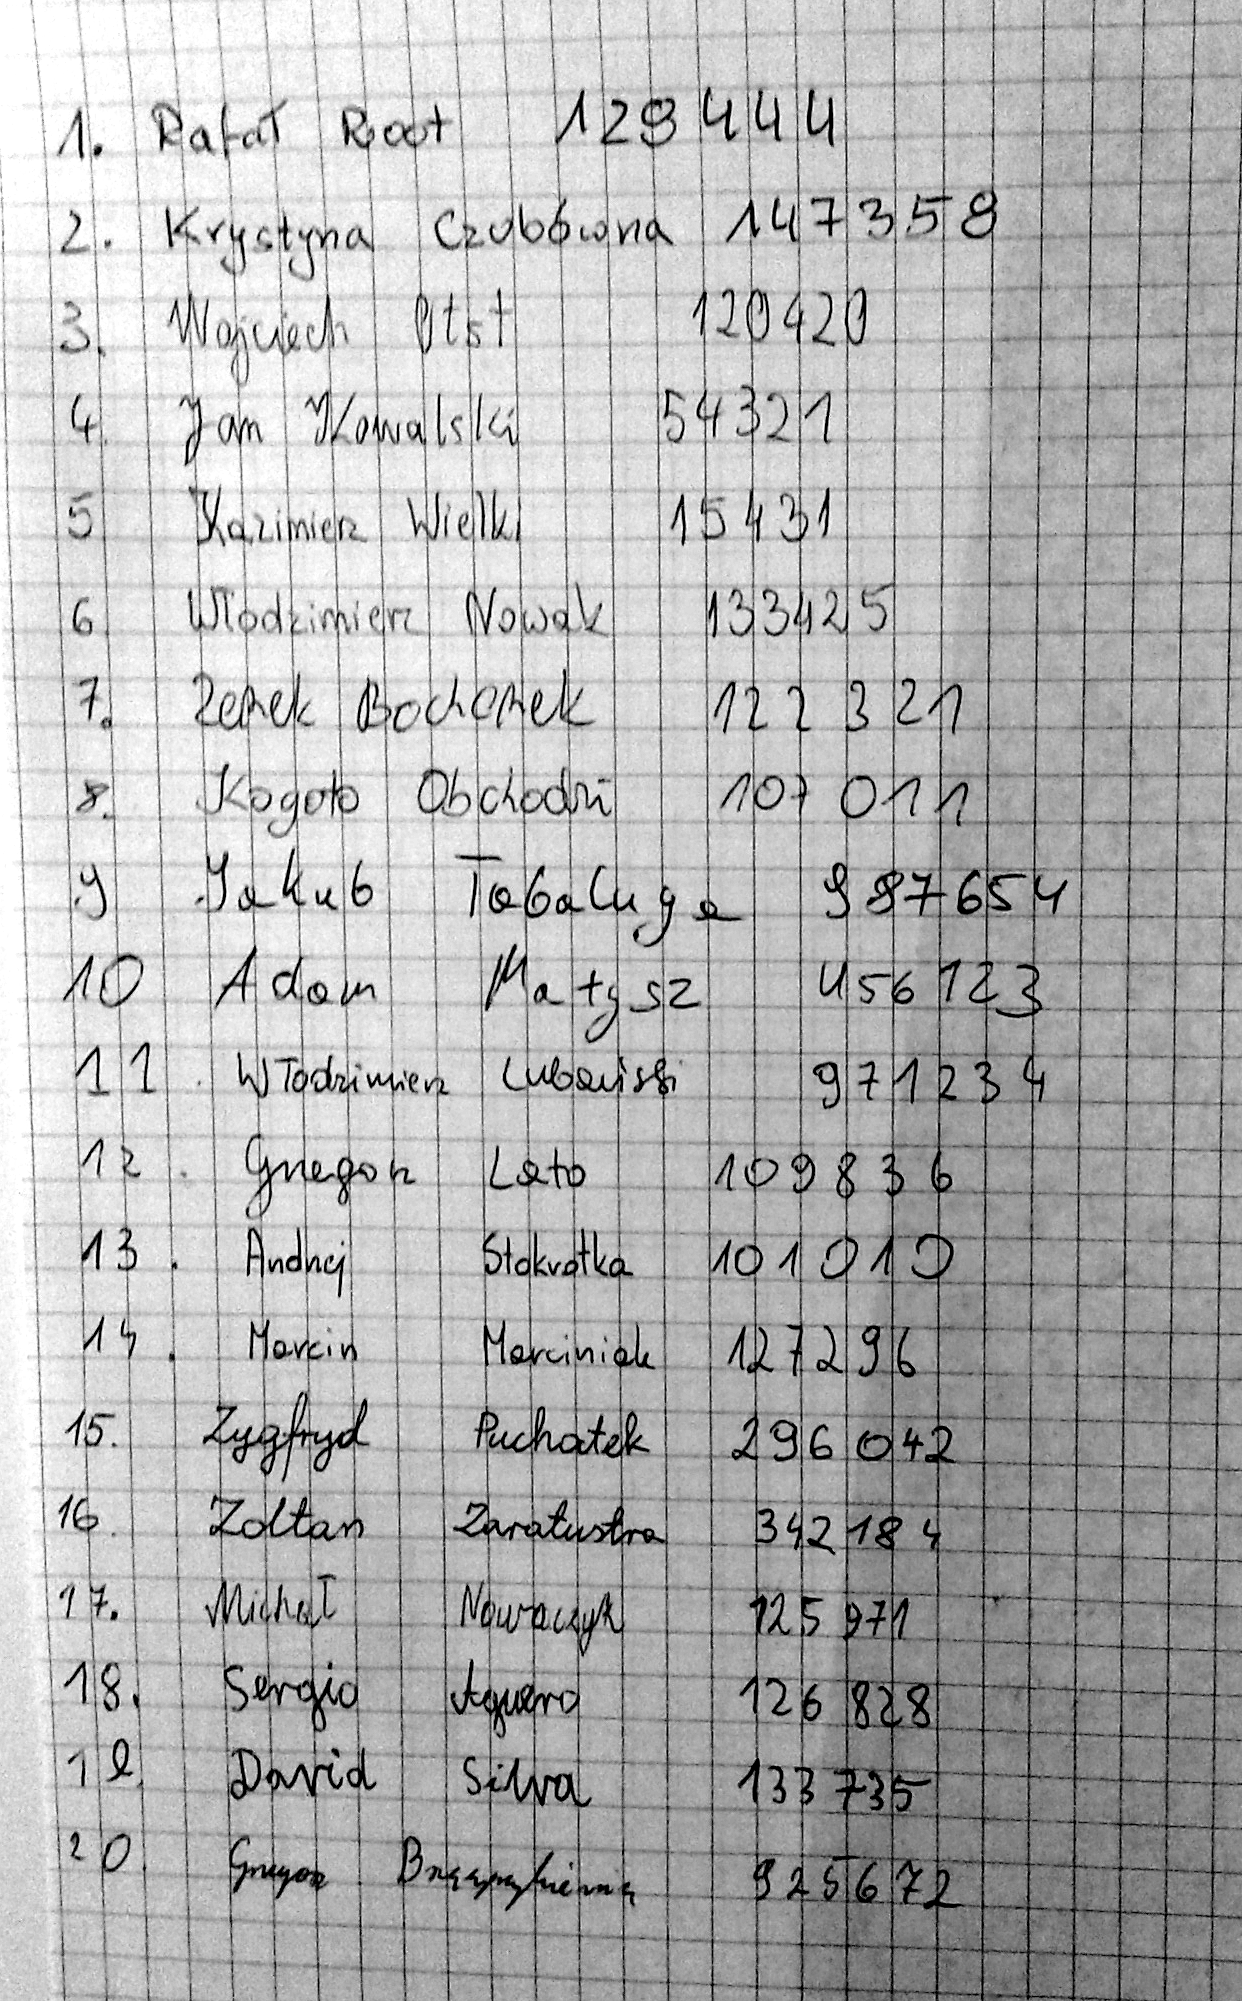 1. Rafał Root 129444
2. Krystyna Czubówna 147358
3. Wojciech Otst 120420
4. Jan Kowalski 54321
5 Kazimierz Wielki 15431
6 Włodzimierz Nowak 133425
7. Zenek Bochenek 122321
8. Kogoto Obchodzi 107011
9 Jakub Tabaluga 987654
10 Adam Matysz 456123
11. Włodzimierz Lubański 971234
12. Grzegorz Lato 109836
13. Andrzej Stokrotka 101010
14. Marcin Marciniak 127296
15. Zygfryd Puchatek 296042
16. Zoltan Zaratustra 342184
17. Michał Nowaczyk 125971
18. Sergio Aguero 126828
19. David Silva 133735
20. Grzegorz 925672